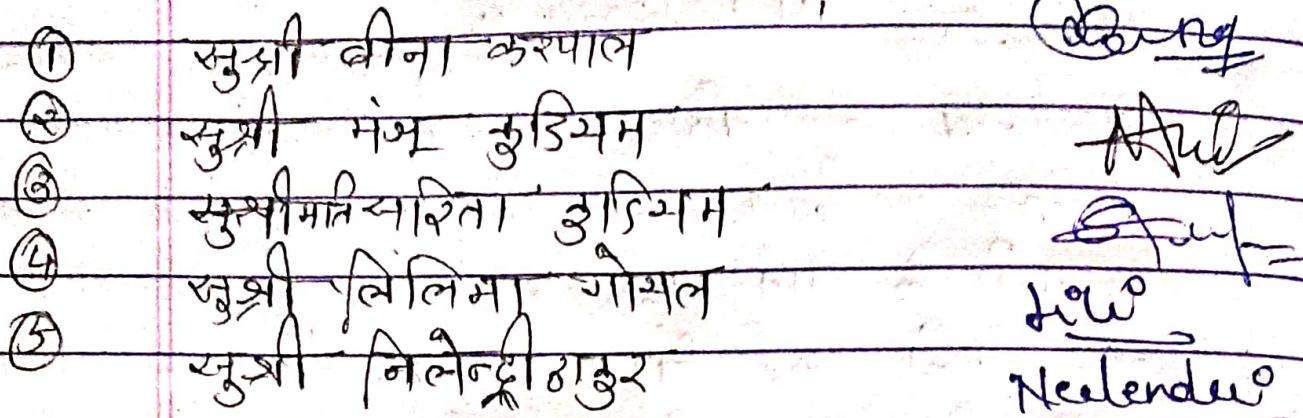 ① सुश्री बीना कश्यपाल
② सुश्री मंजू कुडियम
③ सुश्रीमति सरिता कुडियम
④ सुश्री लिलिमा गोयल
⑤ सुश्री निलेन्द्री ठाकुर Neelendri